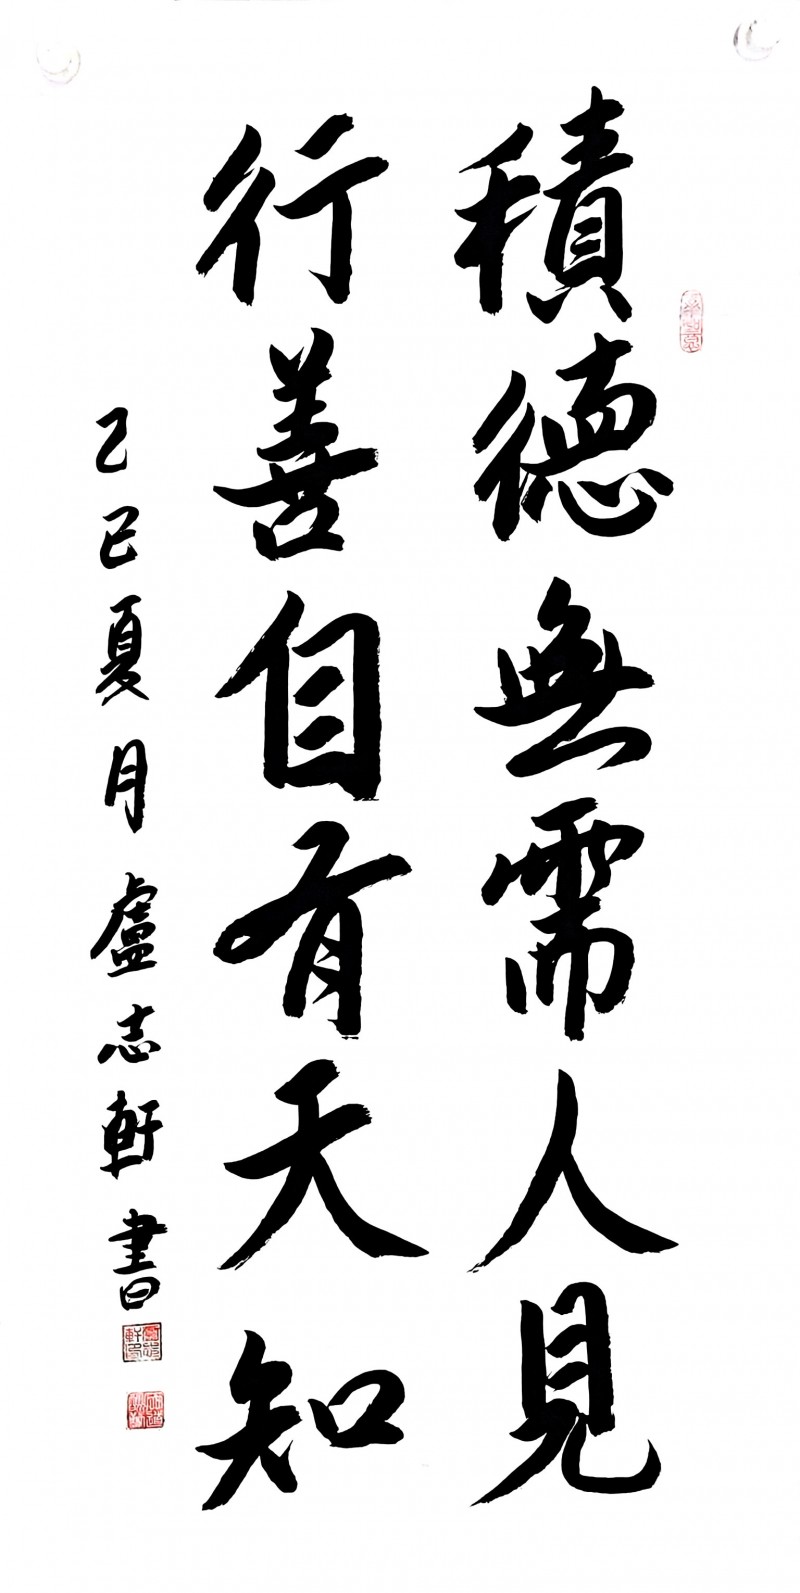 積德無需人見
行善自有天知
乙巳夏月盧志軒書